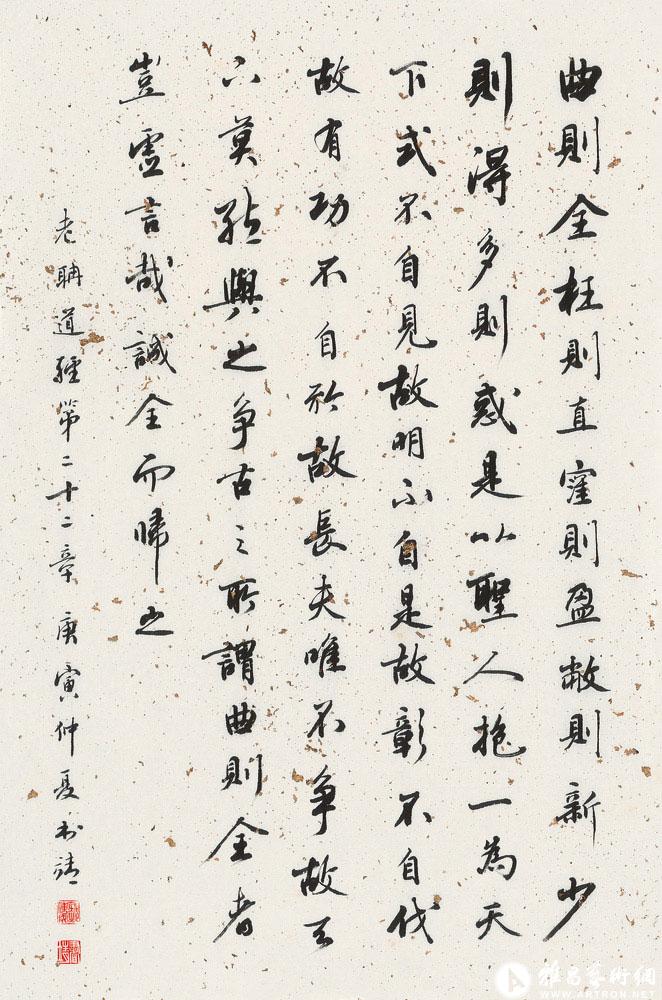 曲則全枉則直窪則盈敝則新少
則得多則惑是以聖人抱一為天
下式不自見故明不自是故彰不自伐
故有功不自矜故長夫唯不争故天
下莫能與之争古之所謂曲則全者
豈虛言哉誠全而歸之
老聃道經第二十二章 庚寅仲夏
雅昌藝術網
WWW.ARTRON.NET